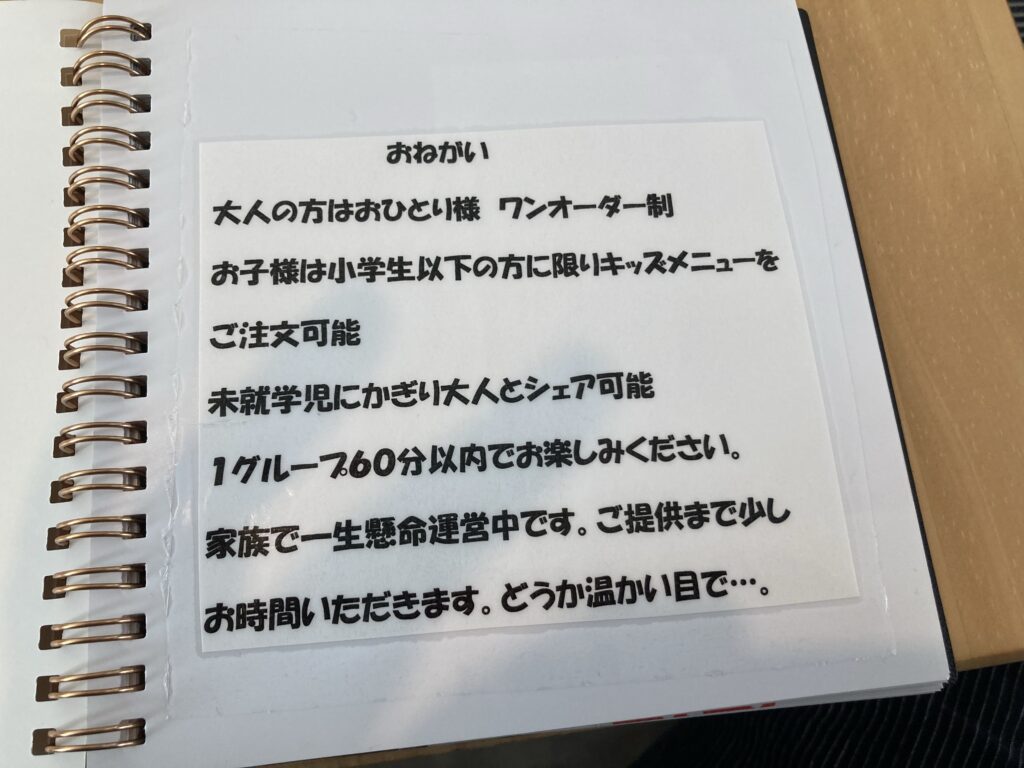 おねがい
大人の方はおひとり様　ワンオーダー制
お子様は小学生以下の方に限りキッズメニューを
ご注文可能
未就学児にかぎり大人とシェア可能
１グループ60分以内でお楽しみください。
家族で一生懸命運営中です。ご提供まで少し
お時間いただきます。どうか温かい目で…。